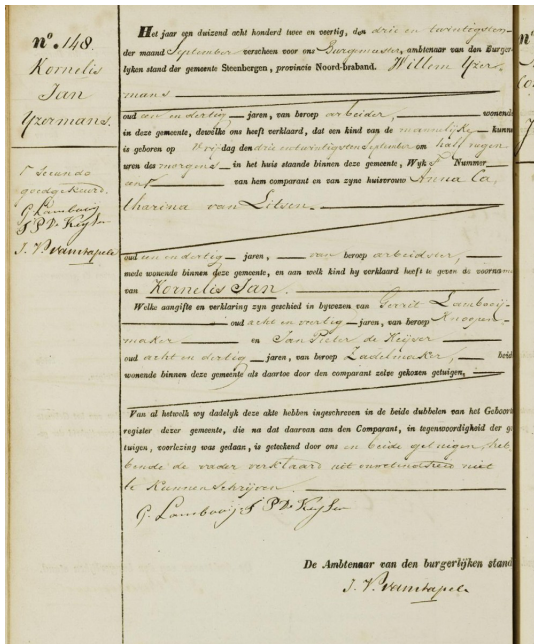 nº. 148.
Kornelis
Jan
Yzermans.
goedgekeurd.
G. Lambooij
J. P. D. Keijser
J. V. van
Het jaar een duizend acht honderd twee en veertig, den drie en twintigsten
der maand September verscheen voor ons Burgemeester, ambtenaar van den Burger-
lyken stand der gemeente Steenbergen, provincie Noord-braband. Willem Yzer-
mans
oud een en dertig jaren, van beroep arbeider, wonende
in deze gemeente, dewelke ons heeft verklaard, dat een kind van de mannelijke kunne
is geboren op Vrijdag den drie en twintigsten September om half negen
uren des morgens in het huis staande binnen deze gemeente, Wyk Nummer
van hem comparant en van zyne huisvrouw Anna Ca
tharina van Litsen.
oud een en dertig jaren, van beroep arbeidster,
mede wonende binnen deze gemeente, en aan welk kind hy verklaard heeft te geven de voorname
van Kornelis Jan.
Welke aangifte en verklaring zyn geschied in bywezen van Gerrit Lambooij
oud acht en veertig jaren, van beroep Knoopen-
maker en Jan Pieter de Keijser
oud acht en dertig jaren, van beroep Zadelmaker, beide
wonende binnen deze gemeente als daartoe door den comparant zelve gekozen getuigen,
Van al hetwelk wy dadelyk deze akte hebben ingeschreven in de beide dubbelen van het Geboorte
register dezer gemeente, die na dat daarvan aan den Comparant, in tegenwoordigheid der ge
tuigen, voorlezing was gedaan, is geteekend door ons en beide getuigen, heb
bende de vader verklaard uit onvelindheid niet
te kunnen schrijven.
G. Lambooij J P D Keijser
De Ambtenaar van den burgerlijken stand
J. V. van